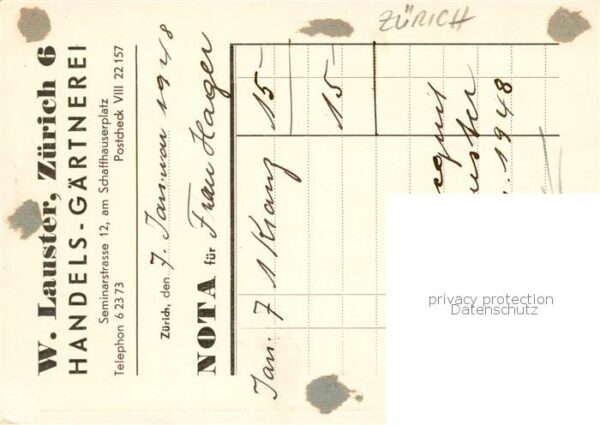 ZÜRICH
W. Lauster, Zürich 6
HANDELS-GÄRTNEREI
Seminarstrasse 12, am Schaffhauserplatz
Telephon 6 23 73 Postcheck VIII 22 157
Zürich, den 7. Januar 1948
NOTA für Frau Hager
Jan. 7 1 Kranz 15.-
15.-
1948
privacy protection
Datenschutz